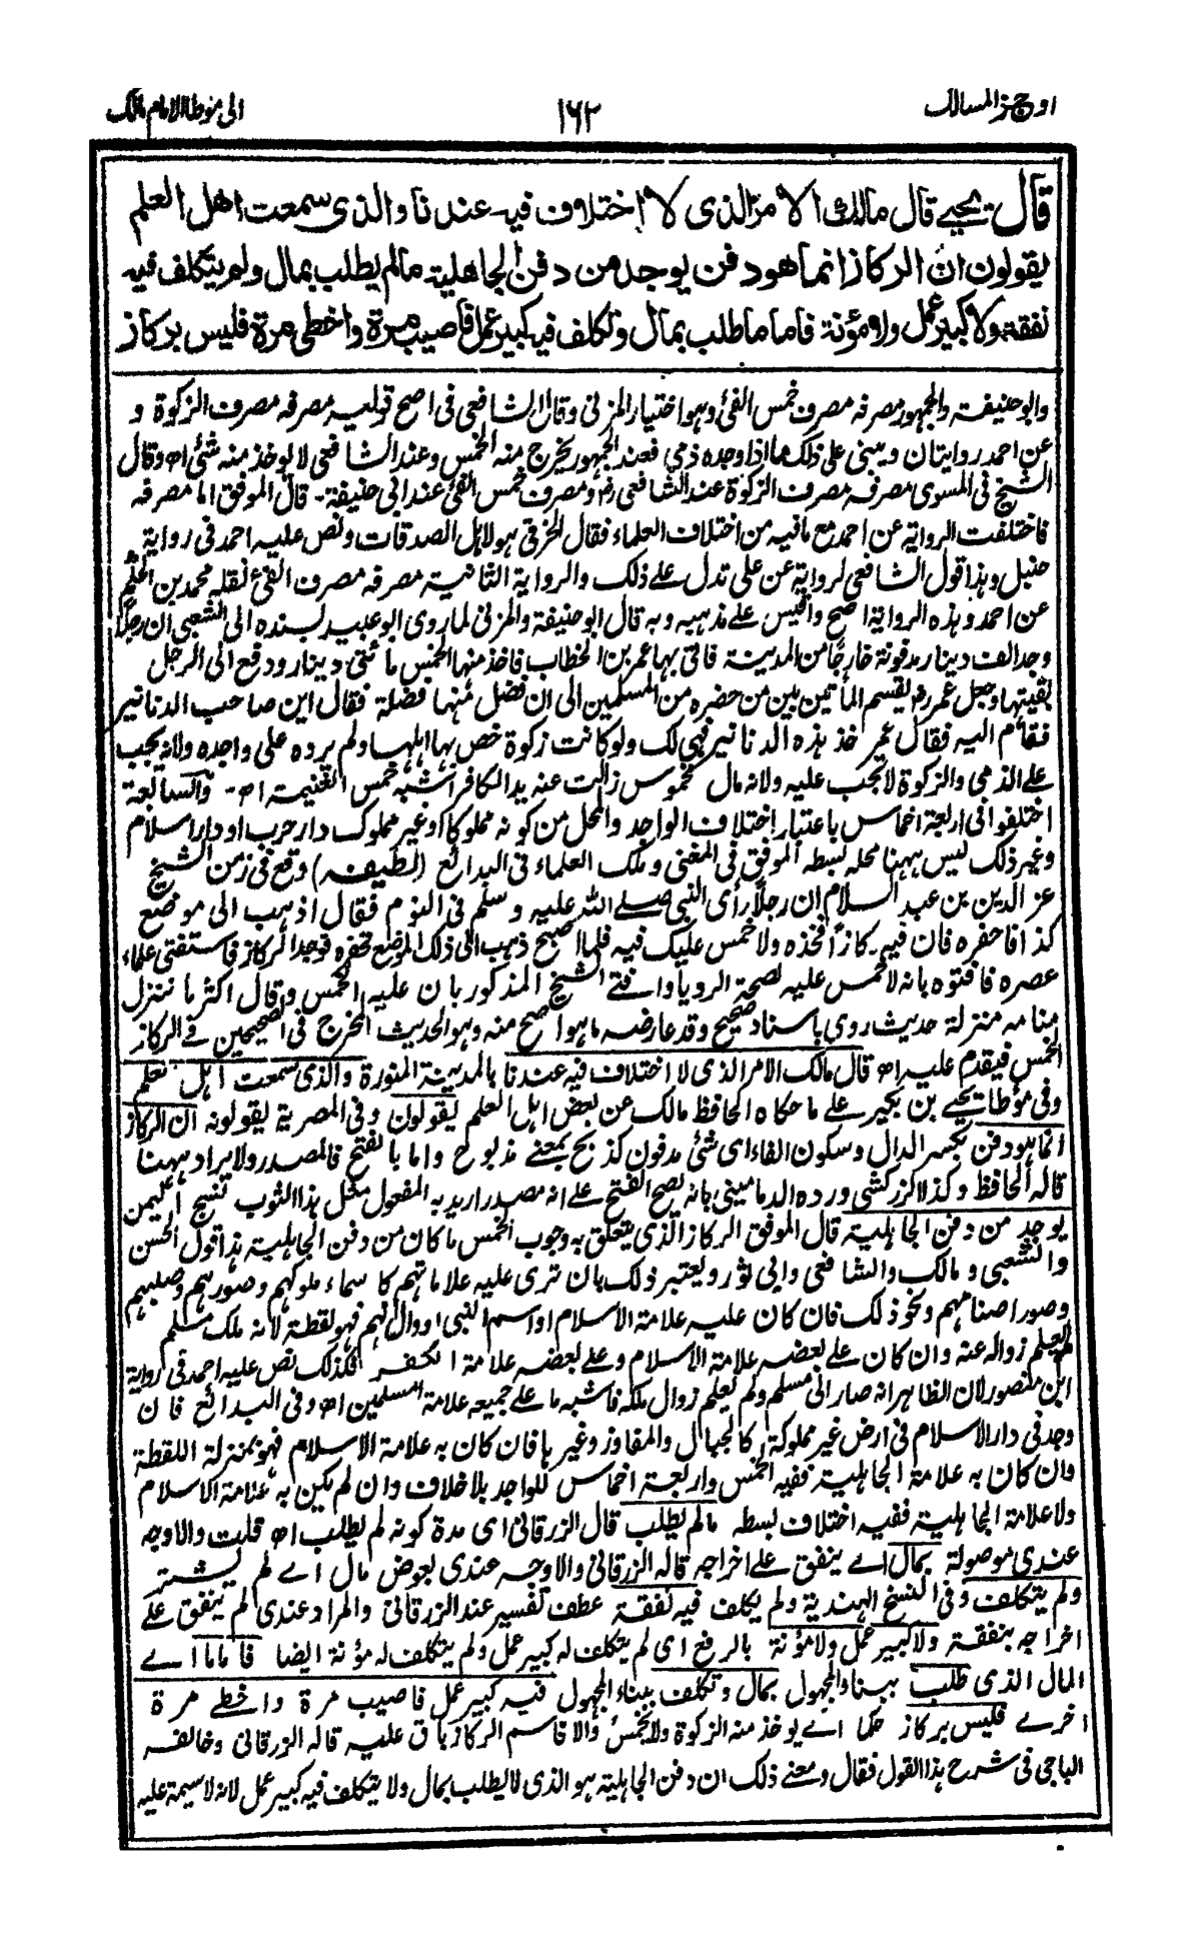 اوجز المسالك
١٦٢
الى موطا الامام مالك
قال يحيے قال مالك الامر الذى لا اختلاف فيه عندنا والذى سمعت اهل العلم
يقولون ان الركاز انما هو دفن يوجد من دفن الجاهلية مالم يطلب بمال ولم يتكلف فيه
نفقة ولا كبير عمل ولا مؤنة فاما ما طلب بمال وتكلف فيه كبير عمل فاصيب مرة واخطى مرة فليس بركاز
وابو حنيفة والجمهور مصرفه مصرف خمس الفئ وهو اختيار المزنى وقال الشافعى فى اصح قوليه مصرفه مصرف الزكوة و
عن احمد روايتان ويبنى على ذلك ما اذا وجده ذمى فعند الجمهور يخرج منه الخمس وعند الشافعى لا يوخذ منه شئ اھ وقال
الشيخ فى المسوى مصرفه مصرف الزكوة عند الشافعى رم ومصرف خمس الفئ عند ابى حنيفة - قال الموفق اما مصرفه
فاختلفت الرواية عن احمد مع مافيه من اختلاف العلماء فقال الخرقى هو لاہل الصدقات ونص عليه احمد فى رواية
حنبل وہذا قول الشافعى لرواية عن على تدل علے ذلك والرواية الثانية مصرفه مصرف الفئ نقله محمد بن الحكم
عن احمد وہذه الرواية اصح واقيس علے مذہبه وبه قال ابو حنيفة والمزنى لما روى ابو عبيد بسنده الى الشعبى ان رجلا
وجد الف دينار مدفونة خارجا من المدينة فاتى بہا عمر بن الخطاب فاخذ منہا الخمس مائتى دينار ودفع الى الرجل
بقيتہا وجعل عمر رم يقسم المأتين بين من حضره من المسلمين الى ان فضل منہا فضلة فقال اين صاحب الدنانير
فقام اليه فقال عمر خذ ہذه الدنانير فہى لك ولو كانت زكوة خص بہا اہلہا ولم يرده على واجده ولانه يجب
علے الذمى والزكوة لا تجب عليه ولانه مال مخموس زالت عنه يد الكافر اشبه خمس الغنيمة اھ - والسابعة
اختلفوا فى اربعة اخماس باعتبار اختلاف الواجد والمحل من كونه مملوكا او غير مملوك دار حرب او دار اسلام
وغير ذلك ليس ہہنا محله بسطه الموفق فى المغنى وملك العلماء فى البدائع (لطيفه) وقع فى زمن الشيخ
عز الدين بن عبد السلام ان رجلا رأى النبى صلے الله عليه وسلم فى النوم فقال اذہب الى موضع
كذا فاحفره فان فيه ركازا فخذه ولا خمس عليك فيه فلما اصبح ذہب الى ذلك الموضع فحفره فوجد الركاز فاستفتى علماء
عصره فافتوه بانه لا خمس عليه لصحة الرويا وافتے الشيخ المذكور بان عليه الخمس وقال اكثر ما ننزل
منامه منزلة حديث روى باسناد صحيح وقد عارضه ما ہو اصح منه وہو الحديث المخرج فى الصحيحين فے الركاز
الخمس فيقدم عليه اھ قال مالك الامر الذى لا اختلاف فيه عندنا بالمدينة المنورة والذى سمعت اہل العلم
وفى موطا يحيے بن بكير علے ما حكاه الحافظ مالك عن بعض اہل العلم يقولون وفى المصرية يقولونه ان الركاز
انما ہو دفن بكسر الدال وسكون الفاء اى شئ مدفون كذبح بمعنے مذبوح واما بالفتح فالمصدر ولا يراد ہہنا
قاله الحافظ وكذا الزركشى ورده الدمامينى بانه يصح الفتح علے انه مصدر اريد به المفعول مثل ہذا الثوب نسيج اليمن
يوجد من دفن الجاہلية قال الموفق الركاز الذى يتعلق به وجوب الخمس ما كان من دفن الجاہلية ہذا قول الحسن
والشعبى ومالك والشافعى وابى ثور ويعتبر ذلك بان ترى عليه علاماتہم كاسماء ملوكہم وصورہم وصلبہم
وصور اصنامہم ونحو ذلك فان كان عليه علامة الاسلام او اسم النبى او وال لہم فہو لقطة لانه ملك مسلم
لم يعلم زواله عنه وان كان علے بعضه علامة الاسلام وعلے بعضه علامة الكفر فكذلك نص عليه احمد فى رواية
ابن منصور لان الظاہر انه صار الى مسلم ولم يعلم زوال ملكه فاشبه ما علے جميعه علامة المسلمين اھ وفى البدائع فان
وجد فى دار الاسلام فى ارض غير مملوكة كالجبال والمفاوز وغيرہا فان كان به علامة الاسلام فہو بمنزلة اللقطة
وان كان به علامة الجاہلية ففيه الخمس واربعة اخماس للواجد بلا خلاف وان لم يكن به علامة الاسلام
ولا علامة الجاہلية ففيه اختلاف بسطه مالم يطلب قال الزرقانى اى مدة كونه لم يطلب اھ قلت والاوجه
عندى موصولة بمال اے ينفق علے اخراجه قاله الزرقانى والاوجه عندى بعوض مال اے لم يشتر
ولم يتكلف وفى النسخ الہندية ولم يكلف فيه نفقة عطف تفسير عند الزرقانى والمراد عندى لم ينفق علے
اخراجه بنفقة ولا كبير عمل ولا مؤنة بالرفع اى لم يتكلف له كبير عمل ولم يتكلف له مؤنة ايضا فاما ما اے
المال الذى طلب ببناء المجہول بمال وتكلف ببناء المجہول فيه كبير عمل فاصيب مرة واخطے مرة
اخرے فليس بركاز حكما اے يوخذ منه الزكوة ولا يخمس والا فاسم الركاز باق عليه قاله الزرقانى وخالفه
الباجى فى شرح ہذا القول فقال ومعنے ذلك ان دفن الجاہلية ہو الذى لا يطلب بمال ولا يتكلف فيه كبير عمل لانه لا سيمة عليه